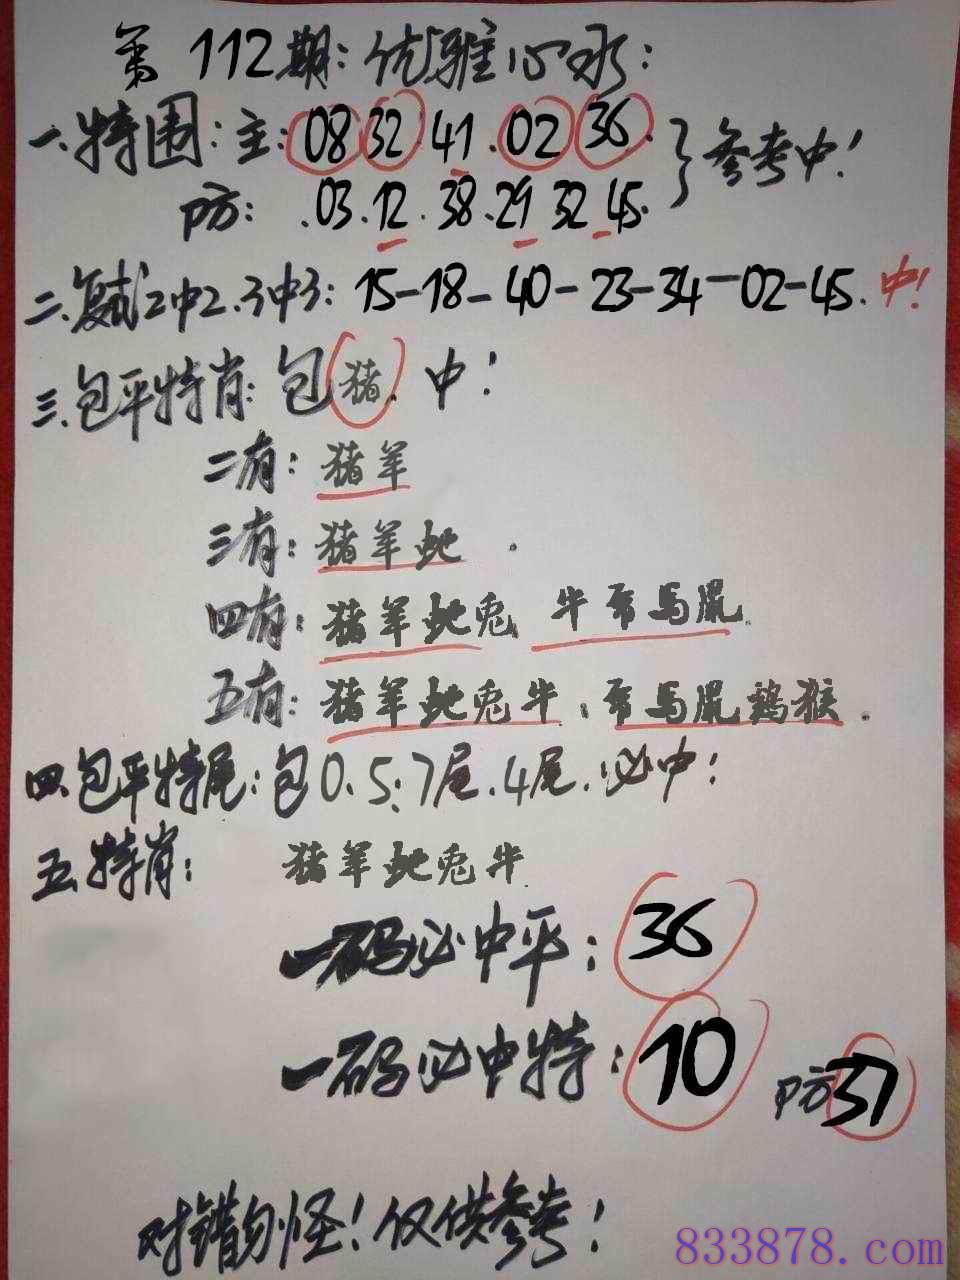 第112期：优雅心水：
一、特围：主：08 32 41.02 36.
防：.03.12.38.29 32 45.
参考中！
二、复式2中2.3中3：15-18-40-23-34-02-45.中！
三、包平特肖：包猪.中！
二有：猪羊
三有：猪羊蛇.
四有：猪羊蛇兔 牛 马鼠.
五有：猪羊蛇兔牛. 马鼠鸡猴.
四.包平特尾：包0.5.7尾.4尾.必中！
五、特肖：猪羊蛇兔牛
一码必中平：36
一码必中特：10 防37
对错勿怪！仅供参考！
833878.com